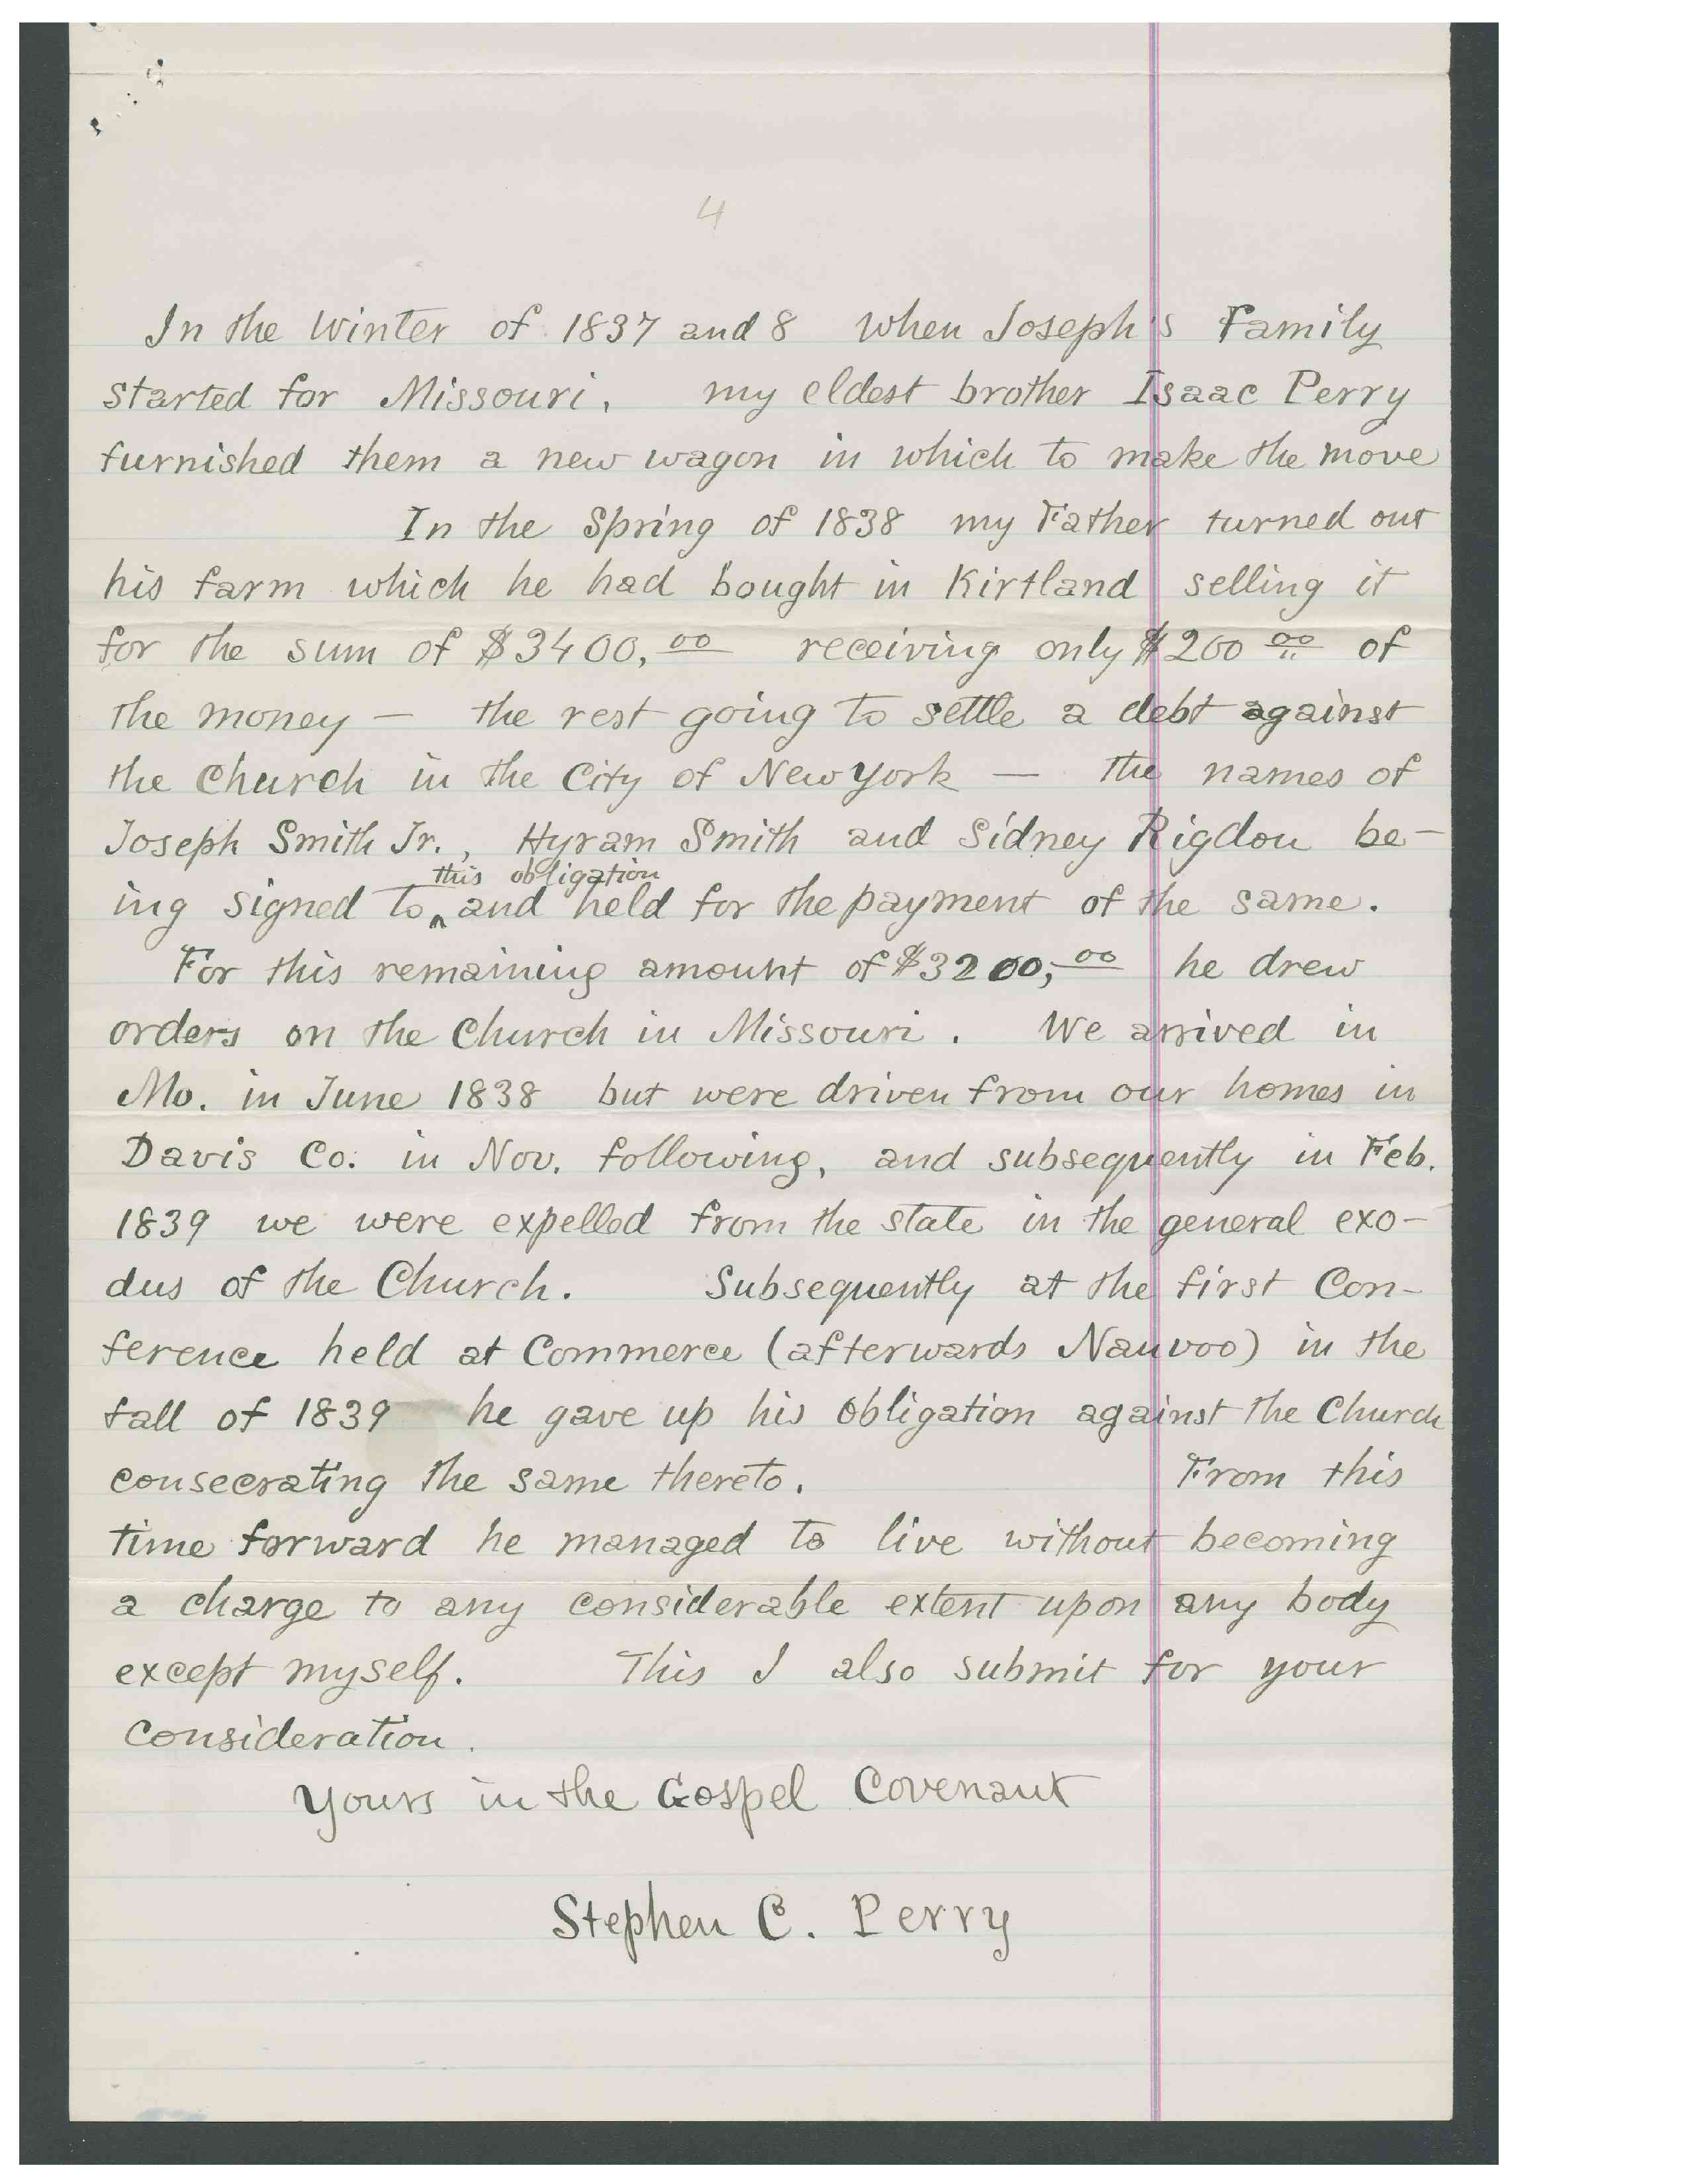 4
In the Winter of 1837 and 8 when Joseph's Family
started for Missouri, my eldest brother Isaac Perry
furnished them a new wagon in which to make the move
In the Spring of 1838 my Father turned out
his farm which he had bought in Kirtland selling it
for the sum of $3400,00 receiving only $200 00 of
the money — the rest going to settle a debt against
the Church in the City of New York — the names of
Joseph Smith Jr., Hyram Smith and Sidney Rigdon be-
this obligation
ing signed to ^ and held for the payment of the same.
For this remaining amount of $3200,00 he drew
orders on the Church in Missouri. We arrived in
Mo. in June 1838 but were driven from our homes in
Davis Co. in Nov. following, and subsequently in Feb.
1839 we were expelled from the state in the general exo-
dus of the Church. Subsequently at the first Con-
ference held at Commerce (afterwards Nauvoo) in the
fall of 1839 he gave up his obligation against the Church
consecrating the same thereto. From this
time forward he managed to live without becoming
a charge to any considerable extent upon any body
except myself. This I also submit for your
consideration.
Yours in the Gospel Covenant
Stephen C. Perry